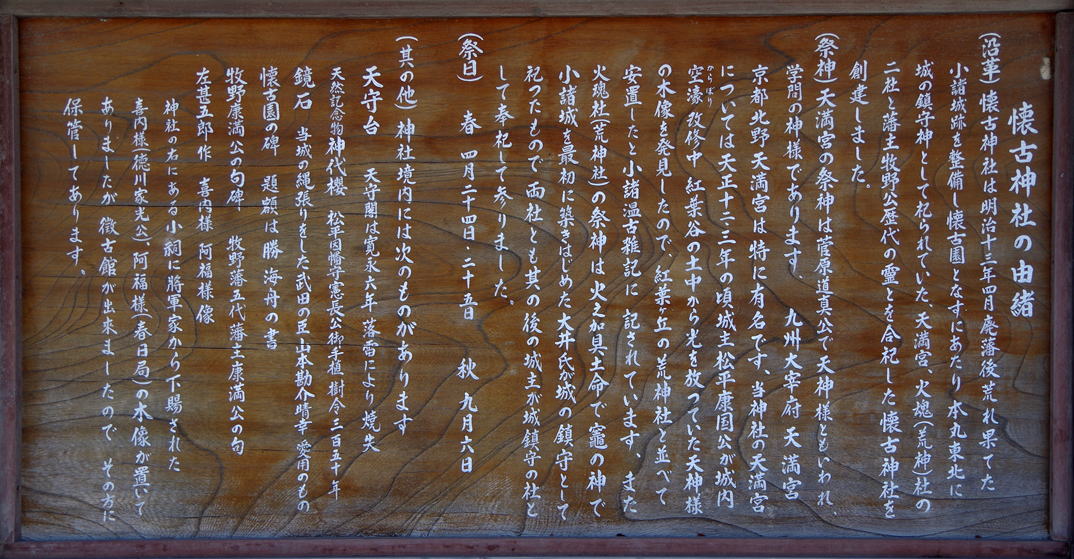 懐古神社の由緒
(沿革)懐古神社は明治十三年四月廃藩後荒れ果てた
小諸城跡を整備し懐古園となすにあたり本丸東北に
城の鎮守神として祀られていた、天満宮、火魂(荒神)社の
二社と藩主牧野公歴代の霊とを合祀した懐古神社を
創建しました。
(祭神)天満宮の祭神は菅原道真公で天神様ともいわれ、
学問の神様であります、九州大宰府天満宮
京都北野天満宮は特に有名です、当神社の天満宮
については天正十二・三年の頃城主松平康国公が城内
空濠改修中 紅葉谷の土中から光を放っていた天神様
からぼり
の木像を発見したので、紅葉ヶ丘の荒神社と並べて
安置したと小諸温古雑記に 記されています、また
火魂社(荒神社)の祭神は火之加具土命で竈の神で
小諸城を最初に築きはじめた大井氏が城の鎮守として
祀ったもので両社とも其の後の城主が城鎮守の社と
して奉祀して参りました。
(祭日) 春 四月二十四日・二十五日 秋 九月六日
(其の他) 神社境内には次のものがあります
天守台 天守閣は寛永六年 落雷により焼失
天然記念物神代櫻 松平因幡守憲良公御手植 樹令三百五十年
鏡石 当城の縄張りをした武田の臣山本勘介晴幸 愛用のもの
懐古園の碑 題額は勝海舟の書
牧野康満公の句碑 牧野藩五代藩主康満公の句
左甚五郎作 喜内様 阿福様像
神社の右にある小祠に将軍家から下賜された
喜内様(徳川家光公)、阿福様(春日局)の木像が置いて
ありましたが 徴古館が出來ましたので その方に
保管してあります。